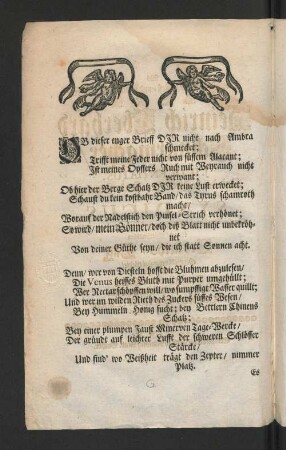 OB dieser enger Brieff DJR nicht nach Ambra
schmecket;
Trifft meine Feder nicht von süssem Alacant;
Ist meines Opffers Ruch mit Weyrauch nicht
verwant;
Ob hier der Berge Schatz DJR keine Lust erwecket;
Schaust du kein kostbahr Band/ das Tyrus schamroth
macht/
Worauf der Nadel sich den Pinsel-Strich verhönet;
So wird/ mein Gönner/ doch diß Blatt nicht unbekröh-
net
Von deiner Güthe seyn/ die ich statt Sonnen acht.
Denn/ wer von Diesteln hofft die Bluhmen abzulesen/
Die Venus heisses Bluth mit Purper umgehüllt;
Wer Nectar schöpffen will/ wo sumpffige Wasser quillt;
Und wer im wilden Rieth des Zuckers süsses Wesen/
Bey Hummeln Honig sucht; bey Bettlern Chinens
Schatz;
Bey einer plumpen Faust Minerven Tage-Wercke/
Der gründt auf leichter Lufft der schweren Schlösser
Stärcke/
Und find' wo Weißheit trägt den Zepter/ nimmer
Platz.
Es